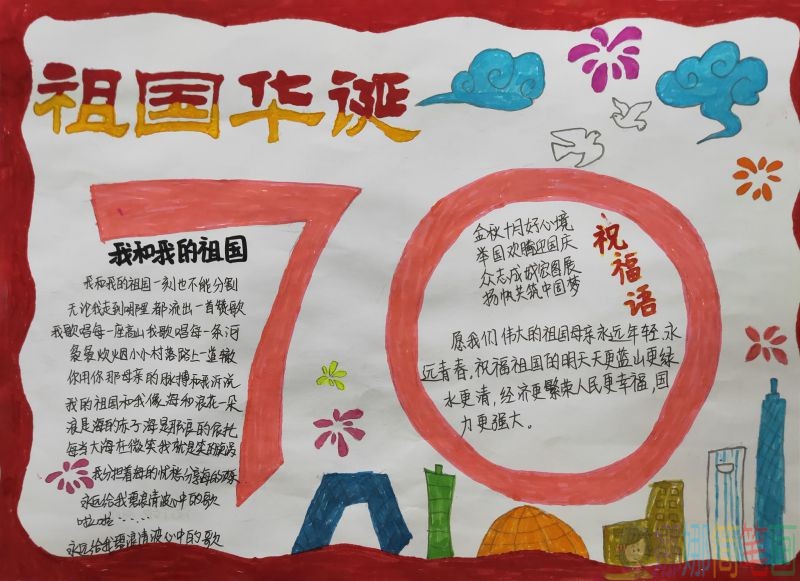 祖国华诞
70
我和我的祖国
我和我的祖国一刻也不能分割
无论我走到哪里都流出一首赞歌
我歌唱每一座高山我歌唱每一条河
袅袅炊烟小小村落路上一道辙
你用你那母亲的脉搏和我诉说
我的祖国和我像海和浪花一朵
浪是海的赤子海是那浪的依托
每当大海在微笑我就是笑的旋涡
我分担着海的忧愁分享海的欢乐
永远给我碧浪清波心中的歌
啦啦……
永远给我碧浪清波心中的歌
祝福语
金秋十月好心境
举国欢腾迎国庆
众志成城宏图展
扬帆共筑中国梦
愿我们伟大的祖国母亲永远年轻,永
远青春,祝福祖国的明天天更蓝山更绿
水更清,经济更繁荣人民更幸福,国
力更强大。